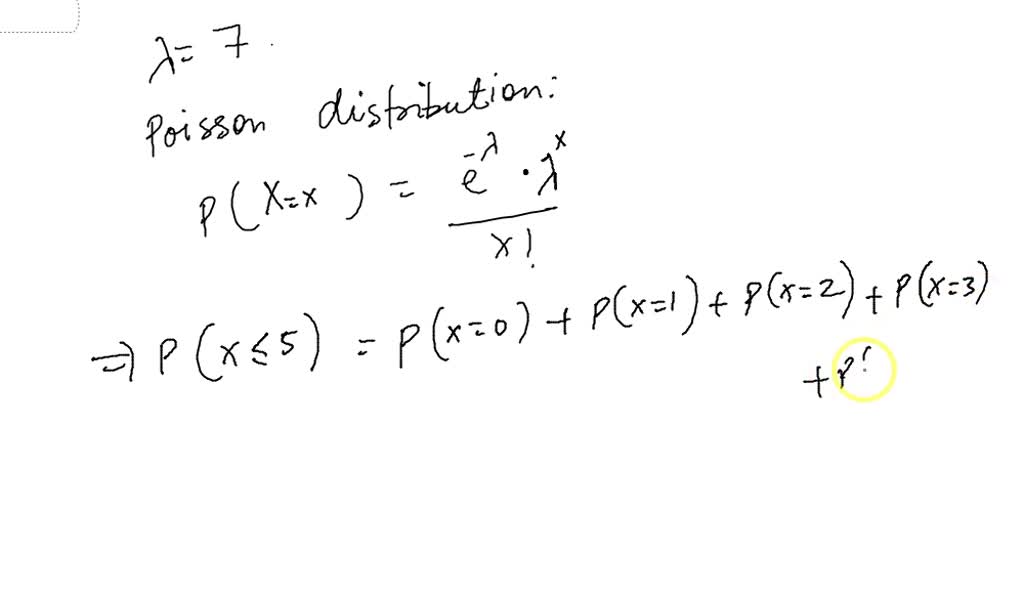 λ= 7.
Poisson distribution:
P(X=x) = e^-λ · λ^x / x!
⇒ P(x≤5) = P(x=0) + P(x=1) + P(x=2) + P(x=3)
+ P(